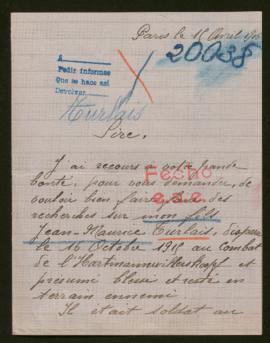 Paris le 16 Avril
20038
A
Pedir informes
Que se hace así
Devolver
Turlais
Sire,
J'ai recours à votre grande
Fecho
bonté, pour vous demander, de
vouloir bien faire faire des
recherches sur mon fils
Jean-Maurice Turlais, disparu
le 16 Octobre 1915 au Combat
de l'Hartmannwillerskopf et
présumé blessé et resté en
terrain ennemi
Il était soldat au